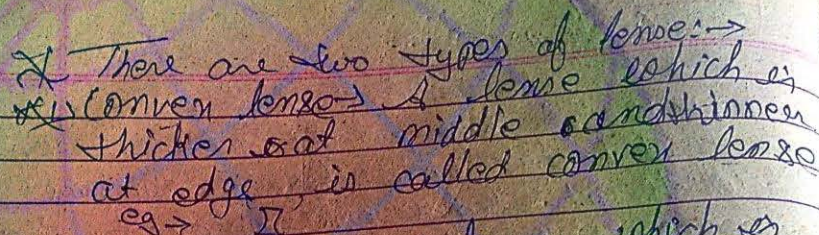 There are two types of lense:→
(i) Convex lense→ A lense which is
thicker at middle and thinner
at edge, is called convex lense
eg→
which is